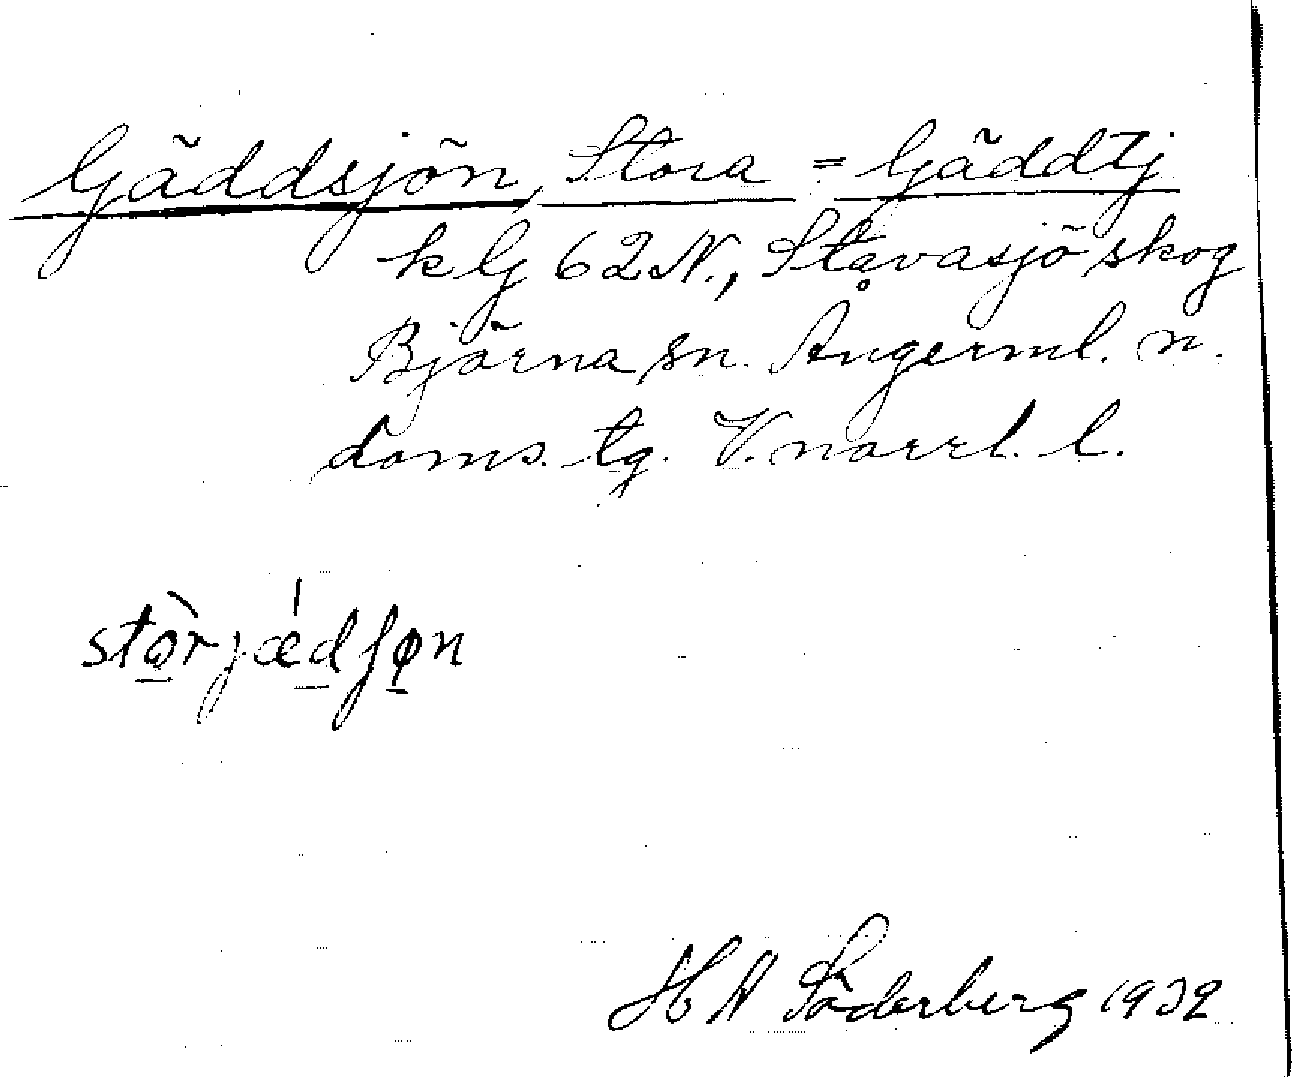 Gäddsjön, Stora = Gäddtj
k G 62 N., Stavasjö skog
Björna sn. Ångerml. n.
doms. tg. V. norrl. l.
stòrjǽdʃøn
H A Söderberg 1932